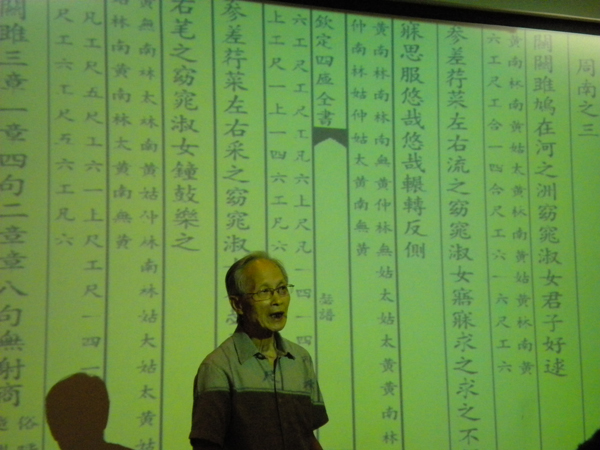 周南之三
關關雎鳩在河之洲窈窕淑女君子好逑
黃南林南黃姑太黃林南黃姑黃林南黃
六工尺工六一四六尺工六一六尺工六
參差荇菜左右流之窈窕淑女寤寐求之求之不
寐思服悠哉悠哉輾轉反側
黃南林南林南無黃仲林無姑太姑太黃黃南林
仲南林姑仲姑太黃南無黃
欽定四庫全書
瑟譜
六工尺工尺工凡六上尺凡一四一四
上工尺一上一四六工凡六
參差荇菜左右采之窈窕淑
右芼之窈窕淑女鐘鼓樂之
南林太黃南林太黃南無黃
凡工尺五尺工六一上尺工尺一四一
尺工六尺工尺五六工凡六
關雎三章一章四句二章章八句無射商
俗